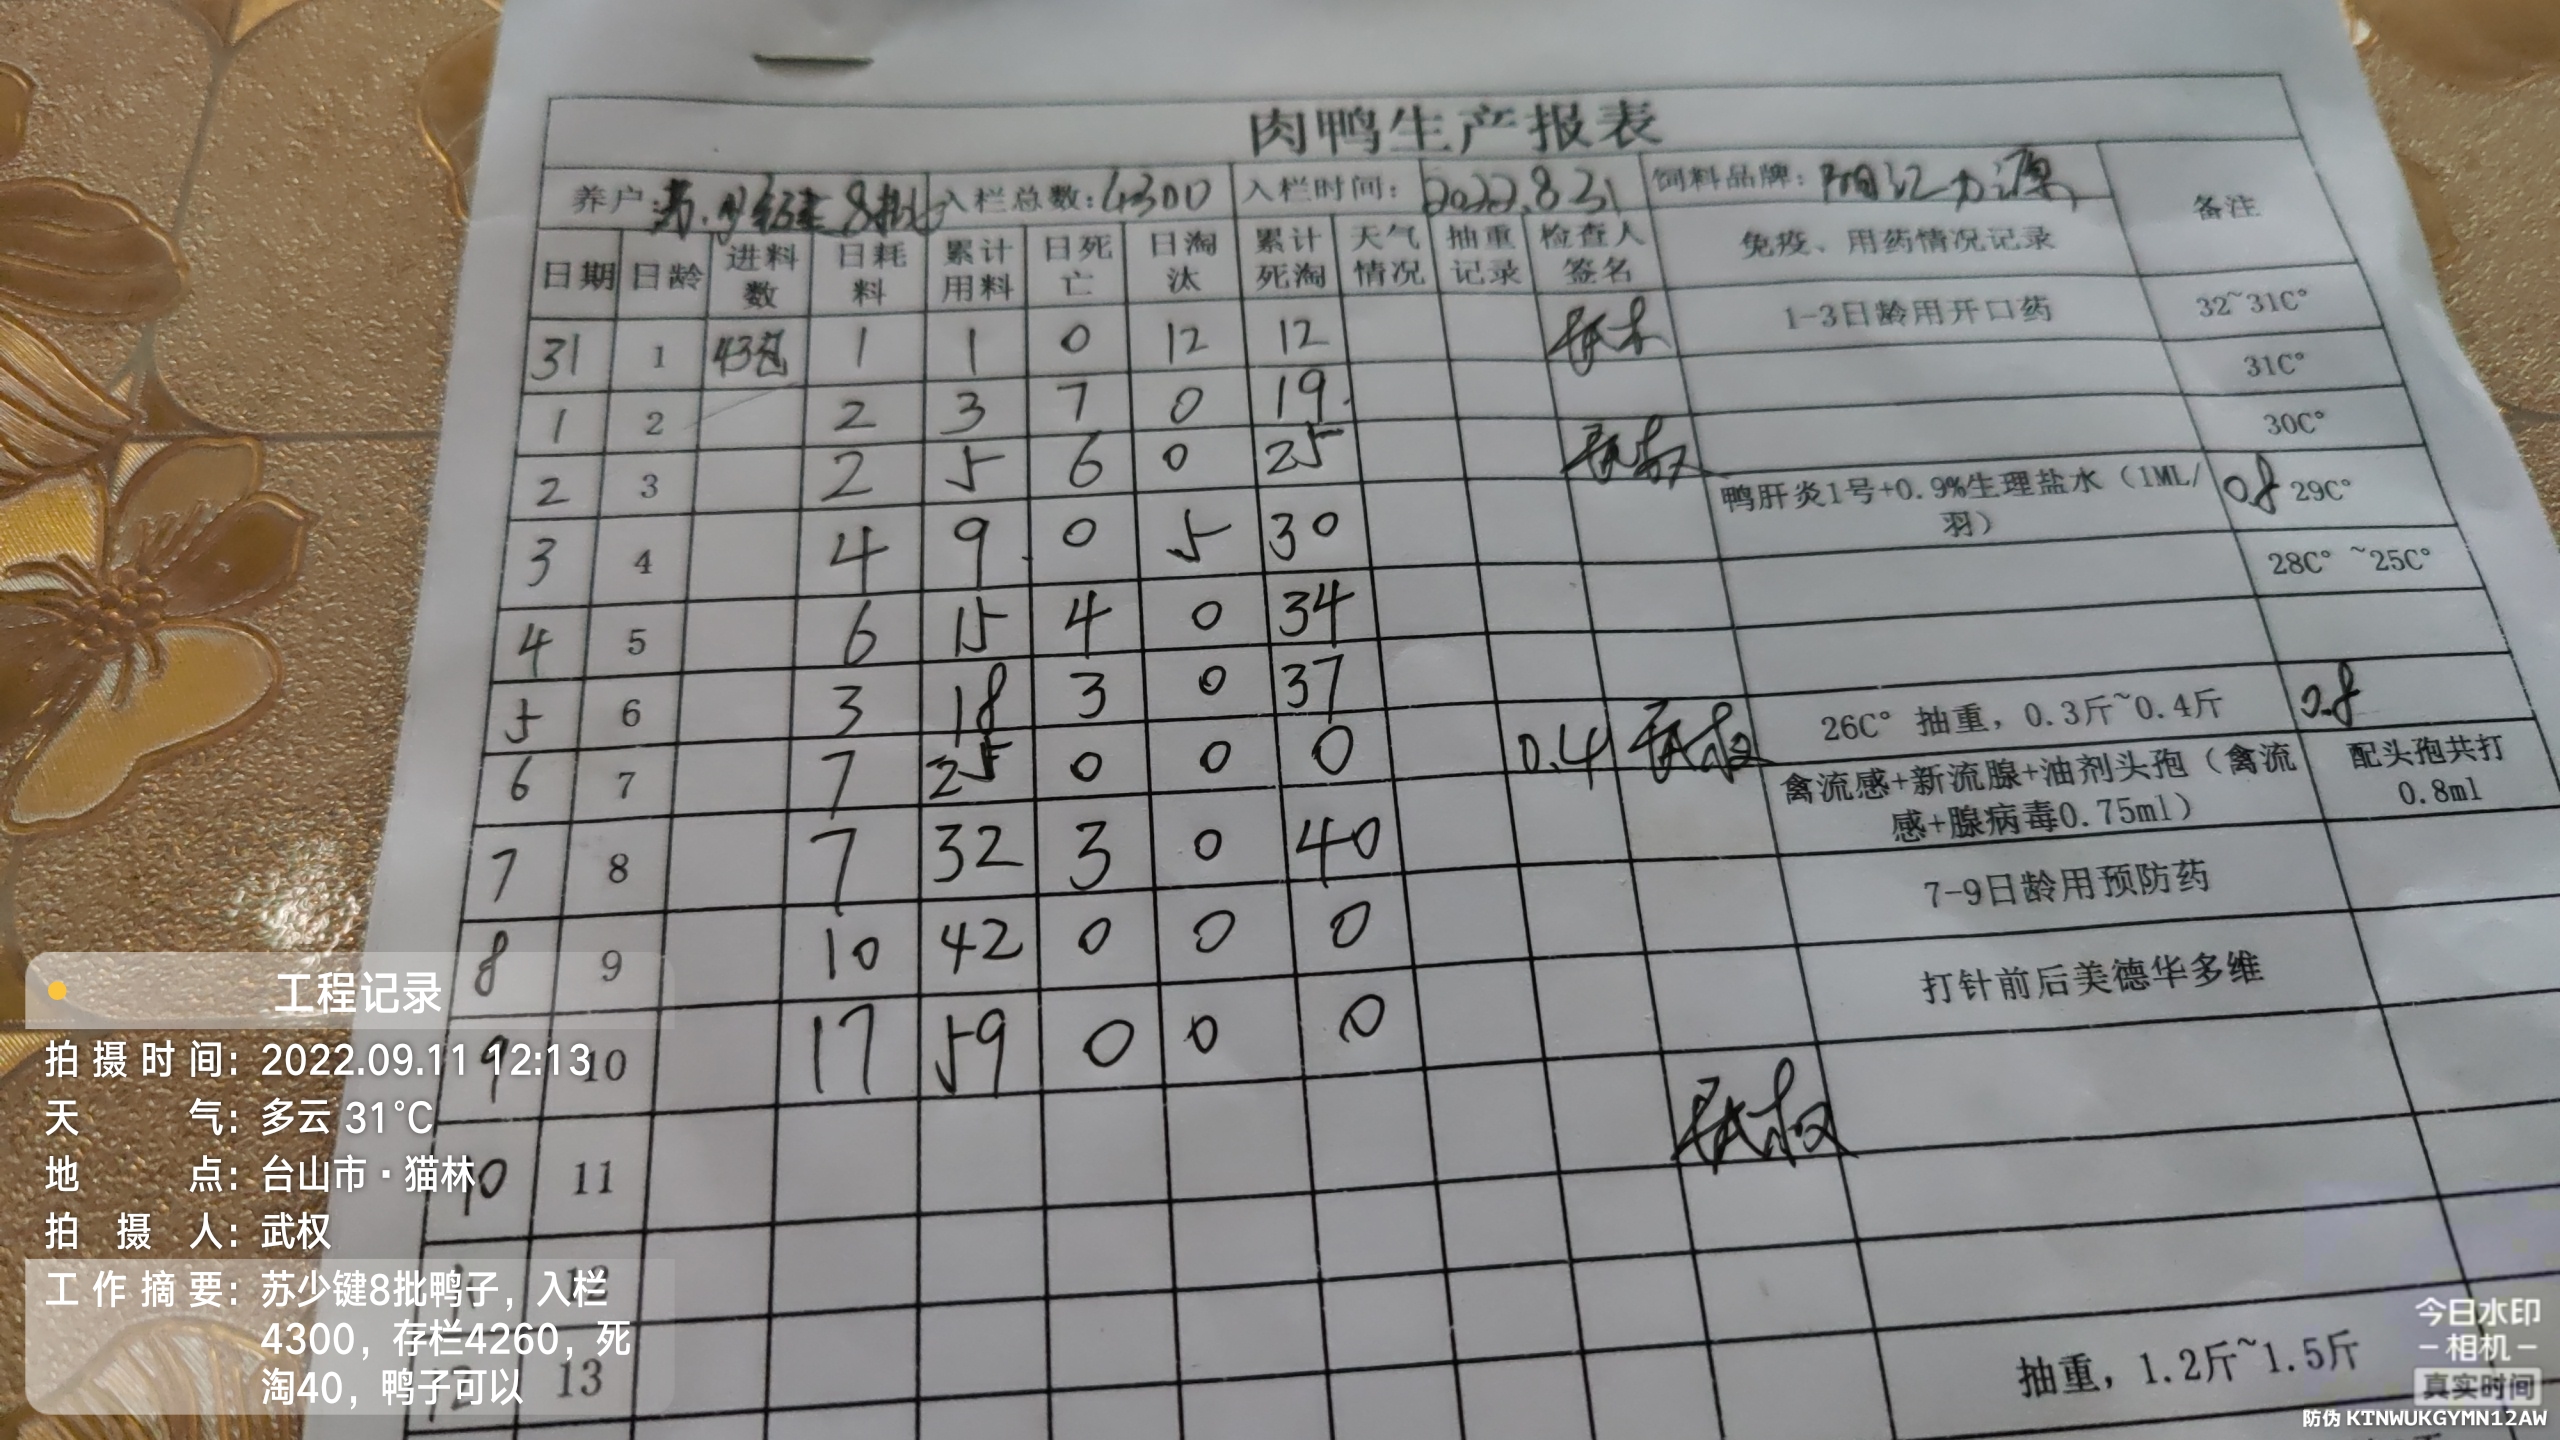 肉鸭生产报表
养户:苏少键8批 入栏总数:4300 入栏时间: 2022.8.31 饲料品牌: 阳江力源 备注
日期 日龄 进料数 日耗料 累计用料 日死亡 日淘汰 累计死淘 天气情况 抽重记录 检查人签名 免疫、用药情况记录
31 1 43包 1 1 0 12 12 武权 1-3日龄用开口药 32~31C°
1 2 2 3 7 0 19. 31C°
2 3 2 5 6 0 25 武权 30C°
3 4 4 9 0 5 30 鸭肝炎1号+0.9%生理盐水（1ML/羽） 0.8 29C°
4 5 6 15 4 0 34 28C° ~25C°
5 6 3 18 3 0 37
6 7 7 25 0 0 0 0.4 武权 26C° 抽重，0.3斤~0.4斤 0.8
7 8 7 32 3 0 40 禽流感+新流腺+油剂头孢（禽流感+腺病毒0.75ml） 配头孢共打0.8ml
8 9 10 42 0 0 0 7-9日龄用预防药
9 10 17 59 0 0 0 打针前后美德华多维
10 11 武权
12
12 13 抽重，1.2斤~1.5斤
工程记录
拍摄时间: 2022.09.11 12:13
天气: 多云 31℃
地点: 台山市·猫林
拍摄人: 武权
工作摘要: 苏少键8批鸭子，入栏
4300，存栏4260，死
淘40，鸭子可以
今日水印
-相机-
真实时间
防伪 KTNWUKGYMN12AW